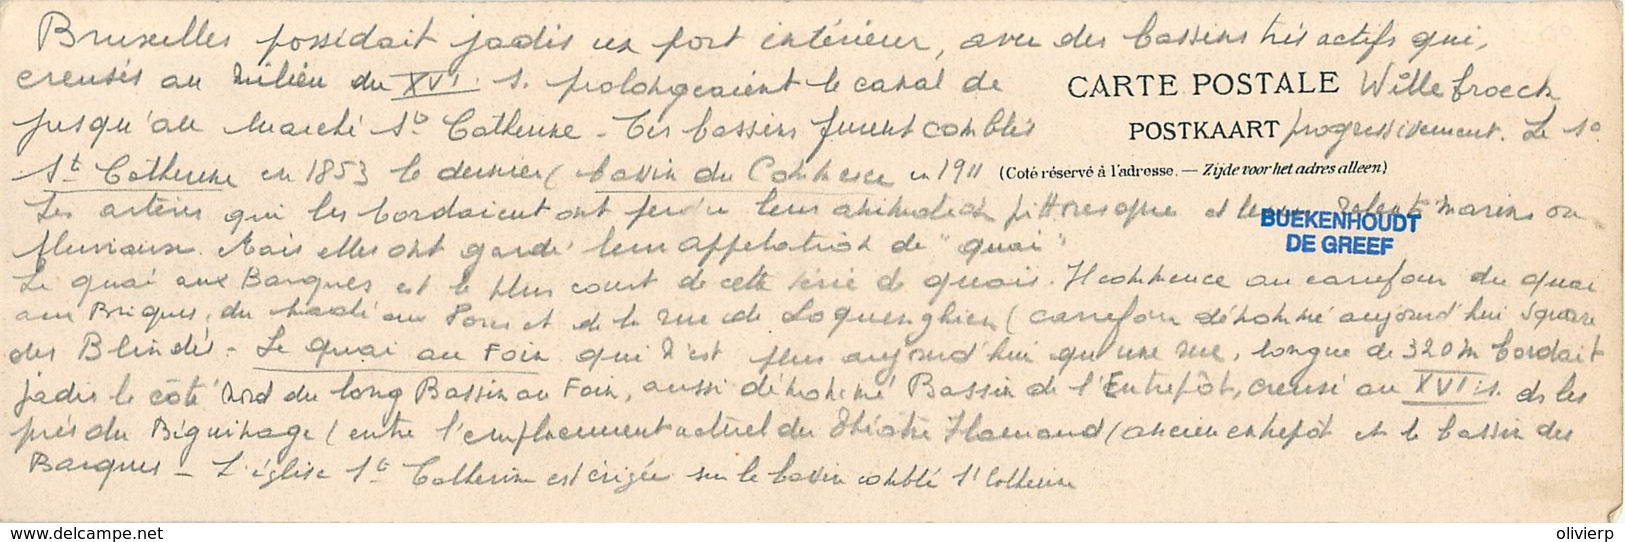 Bruxelles possédait jadis un port intérieur, avec des bassins très actifs qui,
creusés au milieu du XVI s. prolongeaient le canal de Willebroeck
CARTE POSTALE
jusqu'au Marché Ste Catherine - Ces bassins furent comblés progressivement. Le 1o
POSTKAART
Ste Catherine en 1853 le dernier (bassin du Commerce en 1911
(Coté réservé à l'adresse. — Zijde voor het adres alleen)
Les artères qui les bordaient ont perdu leur animation pittoresque et leurs marins ou
BUEKENHOUDT
DE GREEF
fluviaux. Mais elles ont gardé leur appellation de "quai"
Le quai aux Barques est le plus court de cette série de quais. Il commence au carrefour du quai
aux Briques, du marché aux Porcs et de la rue de Locquenghien (carrefour dénommé aujourd'hui Square
des Blindés - Le quai au Foin qui n'est plus aujourd'hui qu'une rue, longue de 320m bordait
jadis le côté Nord du long Bassin au Foin, aussi dénommé Bassin de l'Entrepôt, creusé au XVI s. ds les
prés du Béguinage (entre l'emplacement actuel du Théâtre Flamand (ancien entrepôt et le bassin des
Barques - L'église Ste Catherine est érigée sur le bassin comblé Ste Catherine
delcampe.net
olivierp